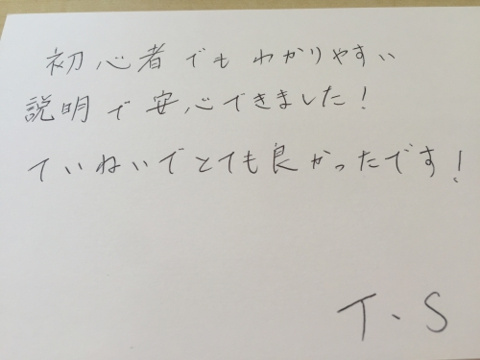 初心者でもわかりやすい
説明で安心できました!
ていねいでとても良かったです!
T、S